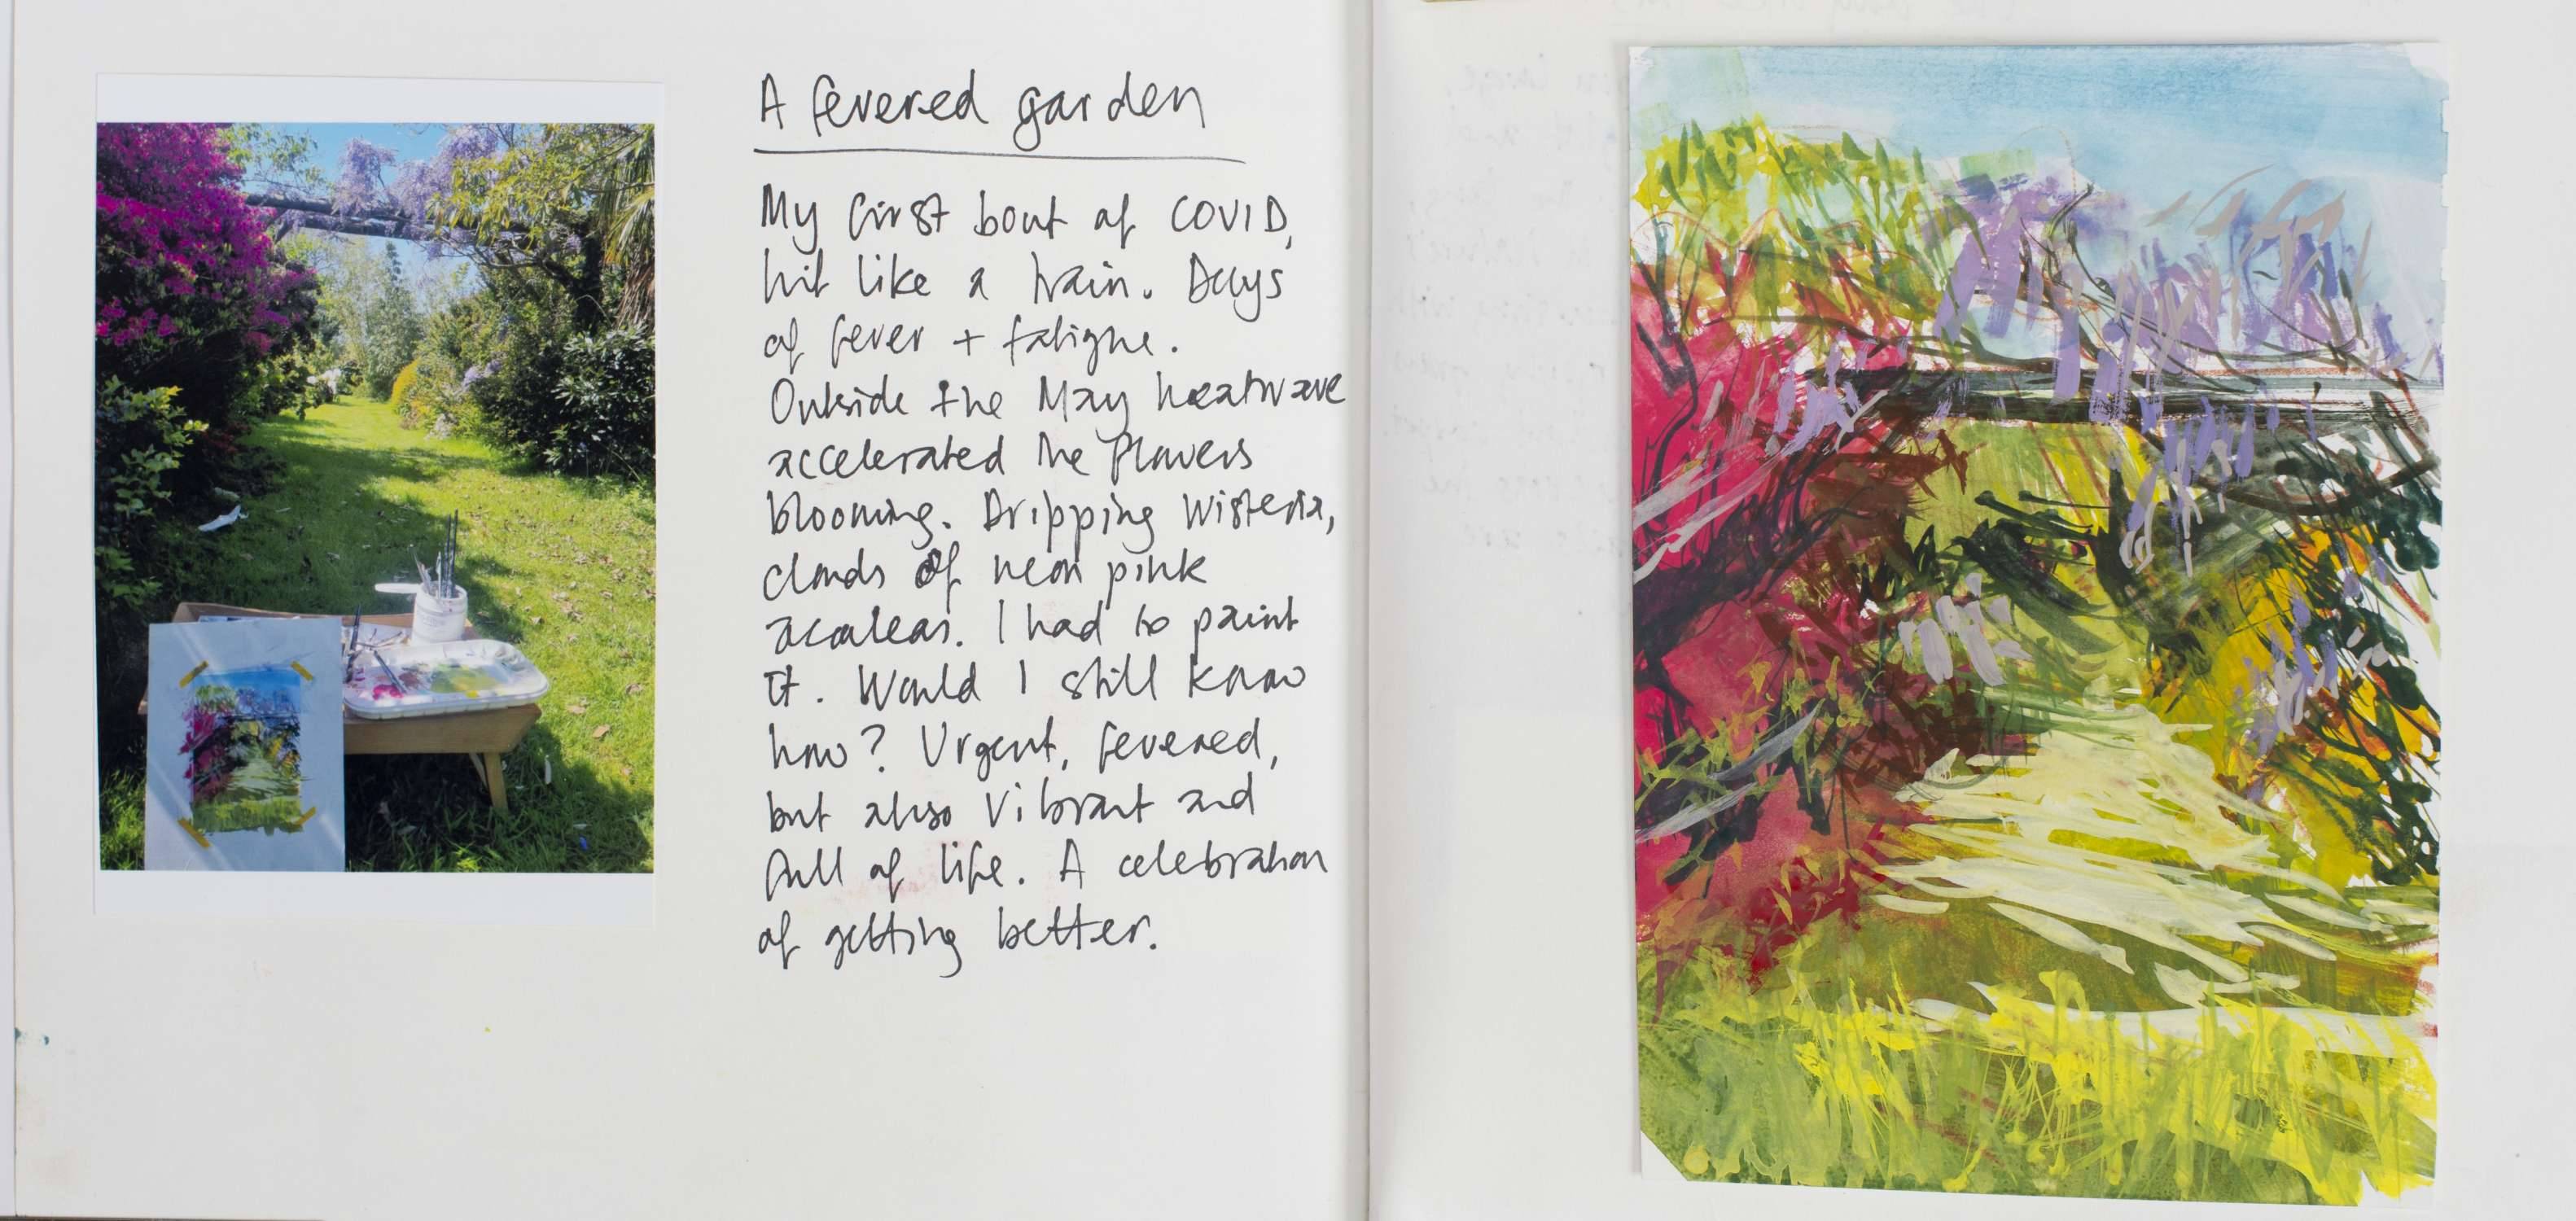 A fevered garden
My first bout of COVID,
hit like a train. Days
of fever + fatigue.
Outside the May heatwave
accelerated the flowers
blooming. Dripping Wisteria,
clouds of neon pink
acaleas. I had to paint
it. Would I still know
how? Urgent, fevered,
but also vibrant and
full of life. A celebration
of getting better.